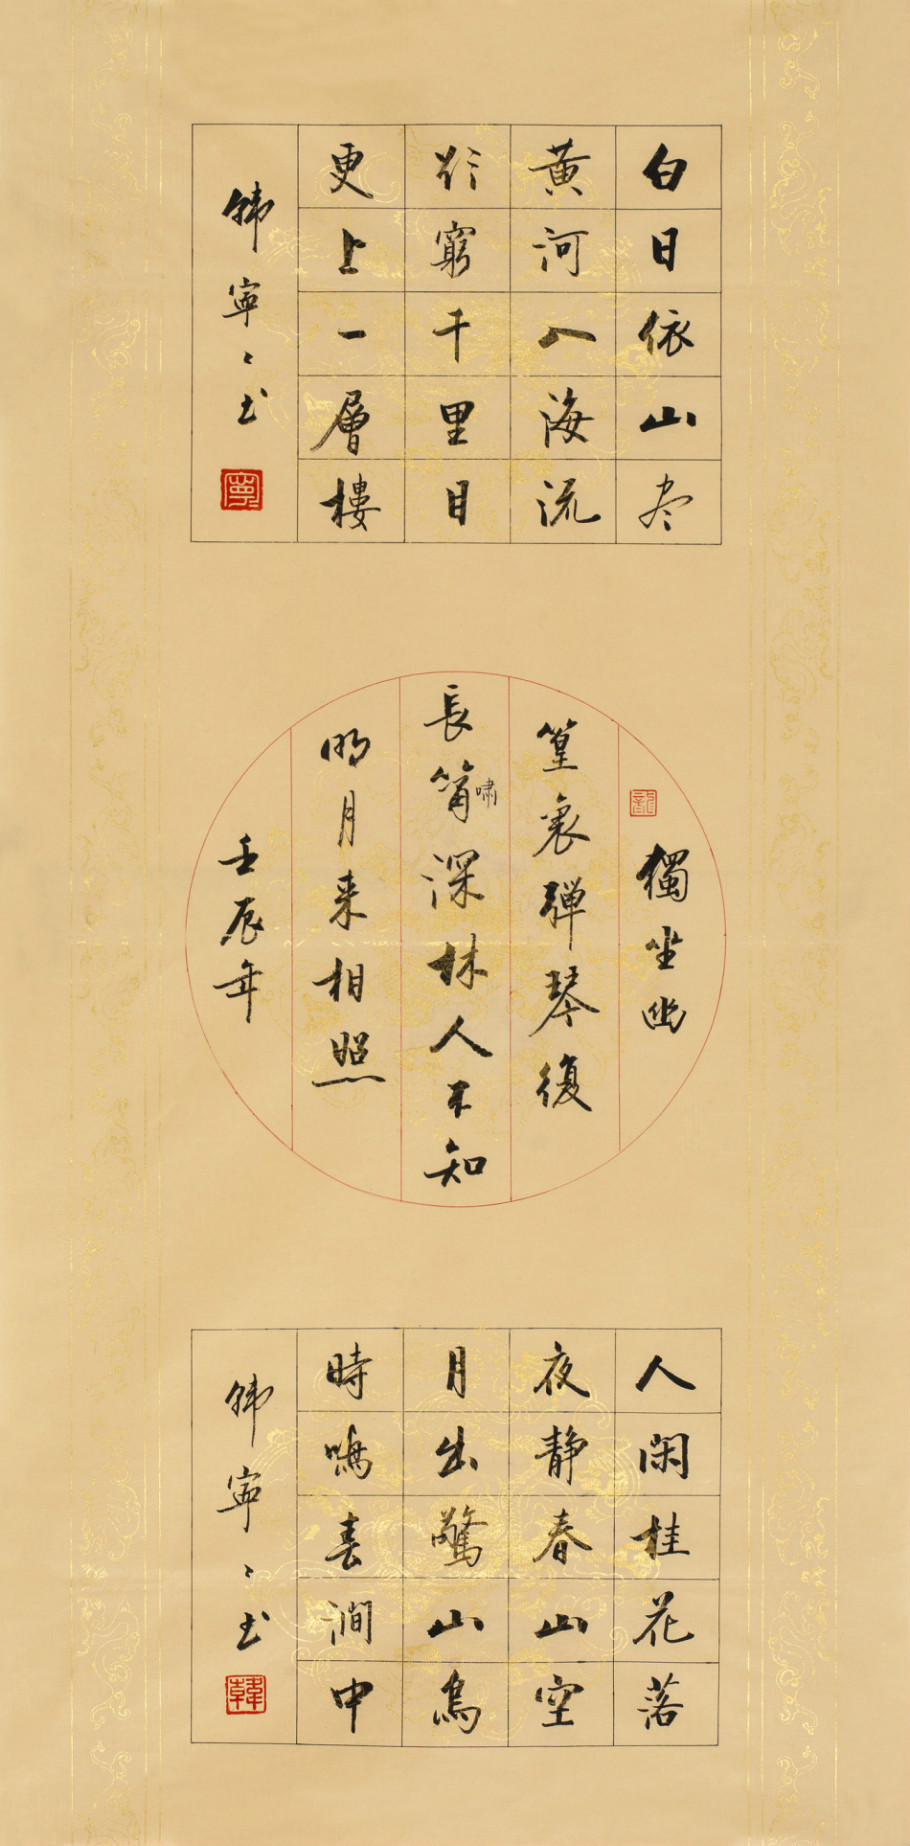 白日依山尽
黄河入海流
欲窮千里目
更上一層樓
韩寧〻书
寧
龍
獨坐幽
篁裏弹琴復
長篇嘯深林人不知
明月来相照
壬辰年
人闲桂花落
夜静春山空
月出驚山鳥
時鳴春澗中
韩寧〻书
韓